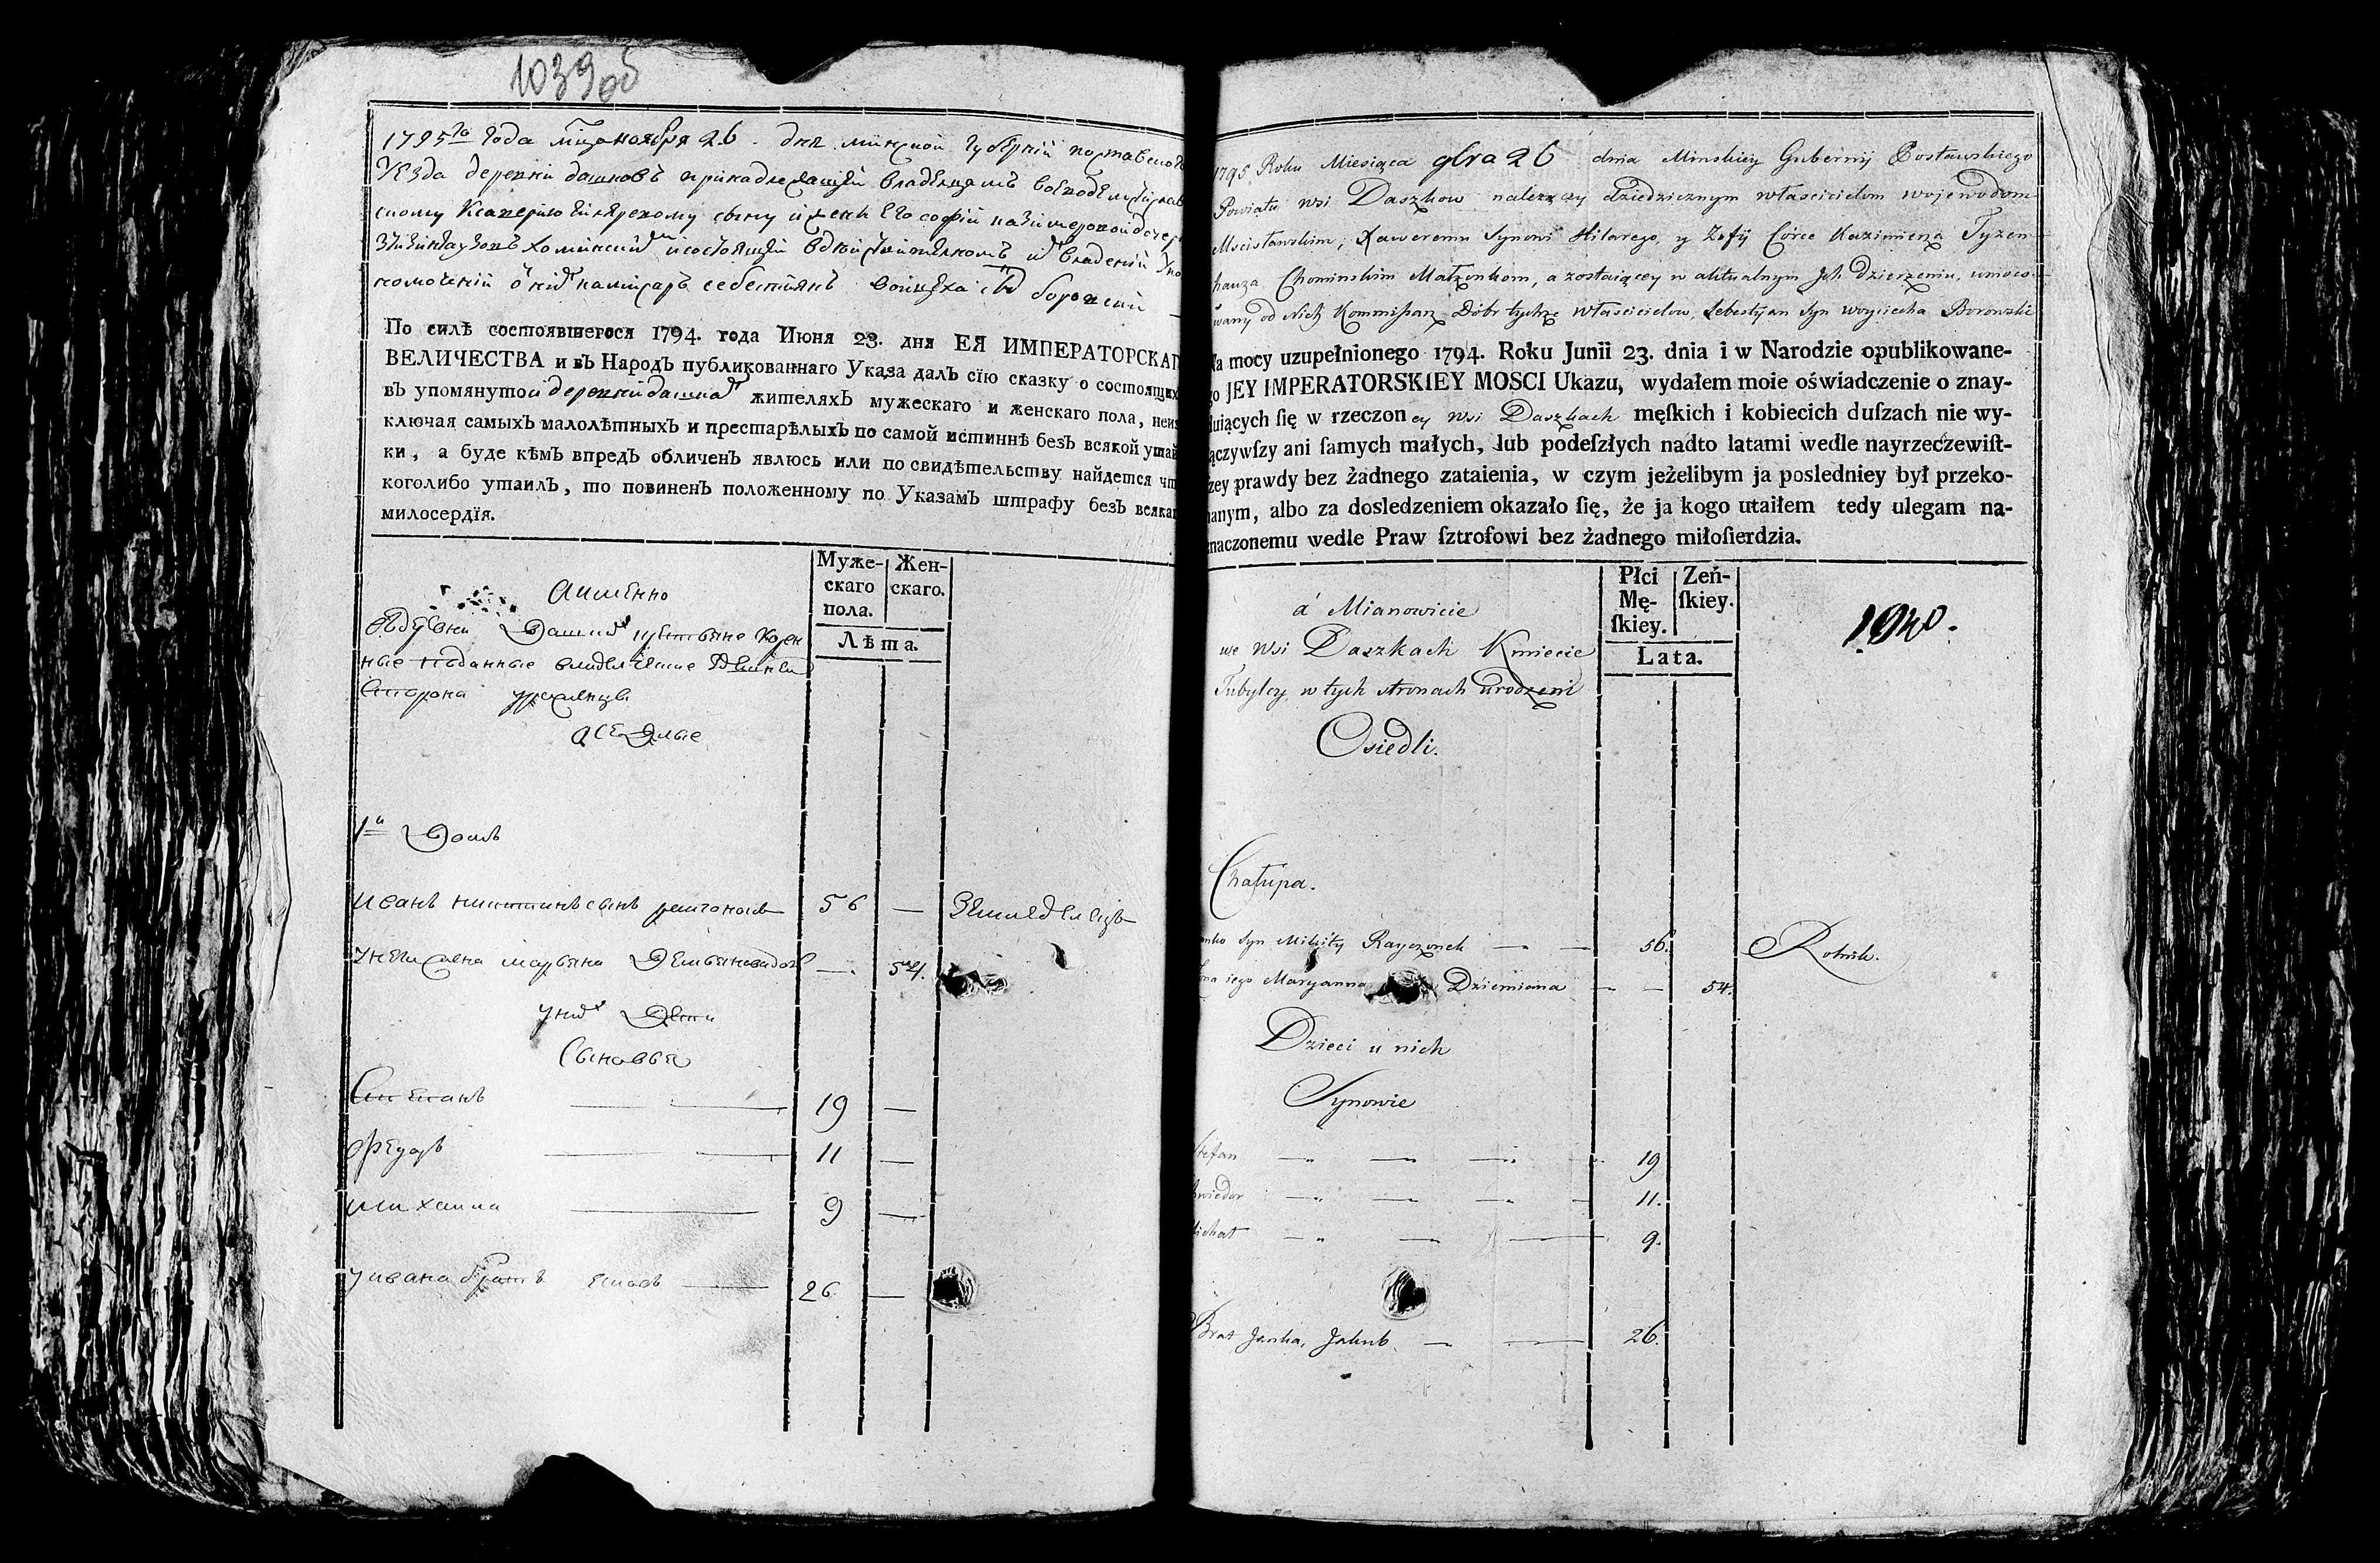 1039 об
1795го года мца ноября 26 дня минской губернии поставского
уезда деревни дашковъ принадлежащей владельцамъ воеводе мстислав
скому Ксаверию гиляреому сыну и жене его софии казимеровой дочере
хоминскимъ и состоящей владении
комисаръ себестиянъ войцеха сынъ боровский
По силѣ состоявшегося 1794. года Июня 23. дня ЕЯ ИМПЕРАТОРСКАГ
ВЕЛИЧЕСТВА и въ Народъ публикованнаго Указа далъ сїю сказку о состоящих
въ упомянутой деревни дашках жителяхъ мужескаго и женскаго пола, неис
ключая самыхъ малолѣтныхъ и престарѣлыхъ по самой истиннѣ безъ всякой утай
ки, а буде кѣмъ впредь обличенъ явлюсь или по свидѣтельству найдется чт
коголибо утаилъ, то повиненъ положенному по Указамъ штрафу безъ всякаг
милосердїя.
Муже-
скаго
пола.
Жен-
скаго.
Лѣта.
аименно
Дашках корен
ные подданные
сторона уроженцы
аседлые
1й Домъ
Иванъ никитинъ сынъ райчонакъ 56 — Земледелецъ
унего жена марьяна Демьянова доч — 54.
уних Дети
Сыновья
Степанъ 19 —
Федоръ 11 —
михаила 9 —
уивана братъ яковъ 26 —
1795 Roku Miesiąca 9bra 26 dnia Minskiey Gubernij Postawskiego
Powiatu wsi Daszkow należący dziedzicznym właścicielom wojewodom
Mscisławskim, Xaweremu Synowi Hilarego, y Zofij Corce Kazimierza Tyzen
hauza Chominskim Małżonkom, a zostaiącey w aktualnym Jch Dzierżeniu, umoco
wany od Nich Kommissarz Dóbr tychże właścicielow, Sebestyan Syn woyciecha Borowski
Na mocy uzupełnionego 1794. Roku Junii 23. dnia i w Narodzie opublikowane-
go JEY IMPERATORSKIEY MOSCI Ukazu, wydałem moie oświadczenie o znay-
duiących ſię w rzeczoney wsi Daszkach męſkich i kobiecich duſzach nie wy-
ączywſzy ani ſamych małych, lub podeſzłych nadto latami wedle nayrzeczewiſt-
zey prawdy bez żadnego zataienia, w czym jeżelibym ja posledniey był przeko-
nanym, albo za dosledzeniem okazało ſię, że ja kogo utaiłem tedy ulegam na-
znaczonemu wedle Praw ſztrofowi bez żadnego miłoſierdzia.
Płci
Mę-
ſkiey.
Zeń-
ſkiey.
Lata.
1040.
á Mianowicie
we Wsi Daszkach Kmiecie
Tubylcy w tych stronach urodzeni
Osiedli.
Chałupa.
anko Syn Mikity Rayczonek — — 56. Rolnik.
ona iego Maryanna Dziemiana — — 54.
Dzieci u nich
Synowie
Stefan — — — — 19
Chwiedor — — — — 11.
Michał — — — 9.
Brat Janka, Jakub. — — 26.